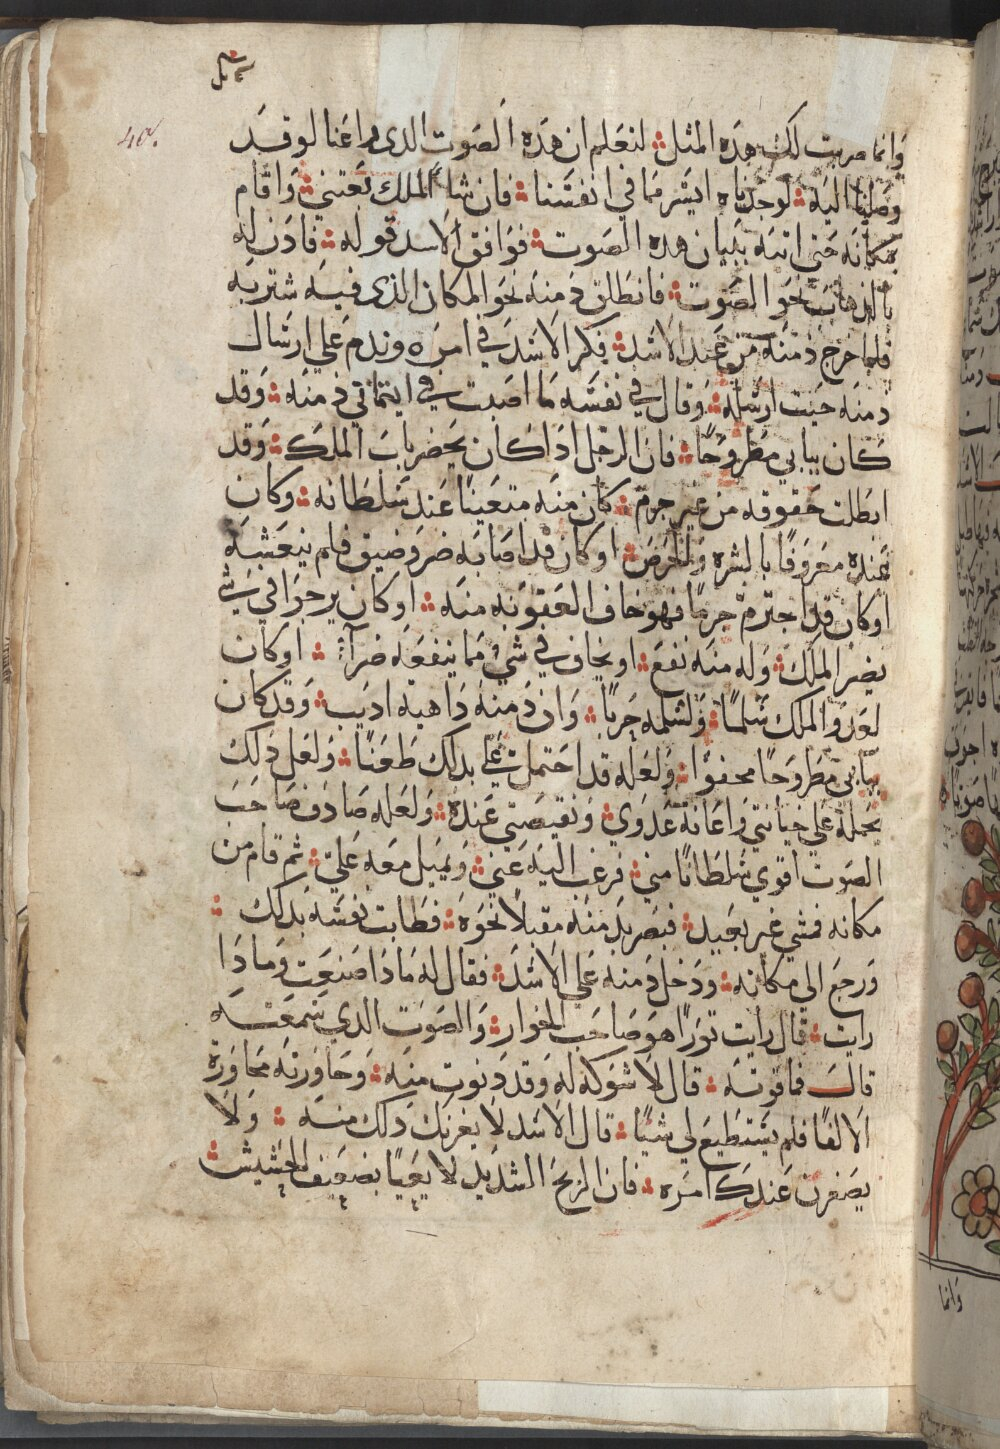 40.
وانما ضربت لك هذه المثل لتعلم ان هذه الصوت الدى راعنا لو قد
وصلنا اليه لوجدناه ايسر مما في انفسنا فان شا الملك بعتني واقام
مكانه حتي اتيه ببيان هده الصوت فوافق الاسد قوله فادن له
بالدهاب نحو الصوت فانطلق دمنه نحو المكان الذى فيه شتربه
فلما خرج دمنه من عند الاسد فكر الاسد في امره وندم علي ارسال
دمنه حيت ارسله وقال في نفسه ما اصبت في ايتماني دمنه وقد
كان ببابي مطروحًا فان الرجل ادا كان يحضر باب الملك وقد
ابطلت حقوقه من غير جرم كان منه متعينًا عند سلطانه وكان
عنده معروفًا بالشره والحرص او كان قد اصابه ضر وضيق فلم ينعشه
او كان قد اجترم جرمًا فهو خاف العقوبه منه او كان يرجوا في شي
يضر الملك وله منه نفع او يخاف في شي مما ينفعه ضرآ او كان
لعدو الملك سلمًا ولسلمه حربًا وان دمنه داهيه اديب وقد كان
ببابي مطروحًا محفوًا ولعله قد احتمل علي بدلك طعنًا ولعل دلك
يحمله علي خيانتي واعانة عدوي ونقيصتي عنده ولعله صادف صاحب
الصوت اقوي سلطانًا مني فرغب اليه عني ويميل معه علي ثم قام من
مكانه فمشي غير بعيد فبصر بدمنه مقبلًا نحوه فطابت نفسه بدلك
ورجع الي مكانه ودخل دمنه علي الاسد فقال له مادا صنعت ومادا
رايت قال رايت تورًا هو صاحب الخوار والصوت الدي سمعته
قال فما قوته قال لا شوكه له وقد دنوت منه وحاورته محاورة
الالفا فلم يستطيع لي شيًا قال الاسد لا يغرنك دلك منه ولا
يصغرن عندك امره فان الريح الشديد لا يعيا بضعيف الحشيش
وانما